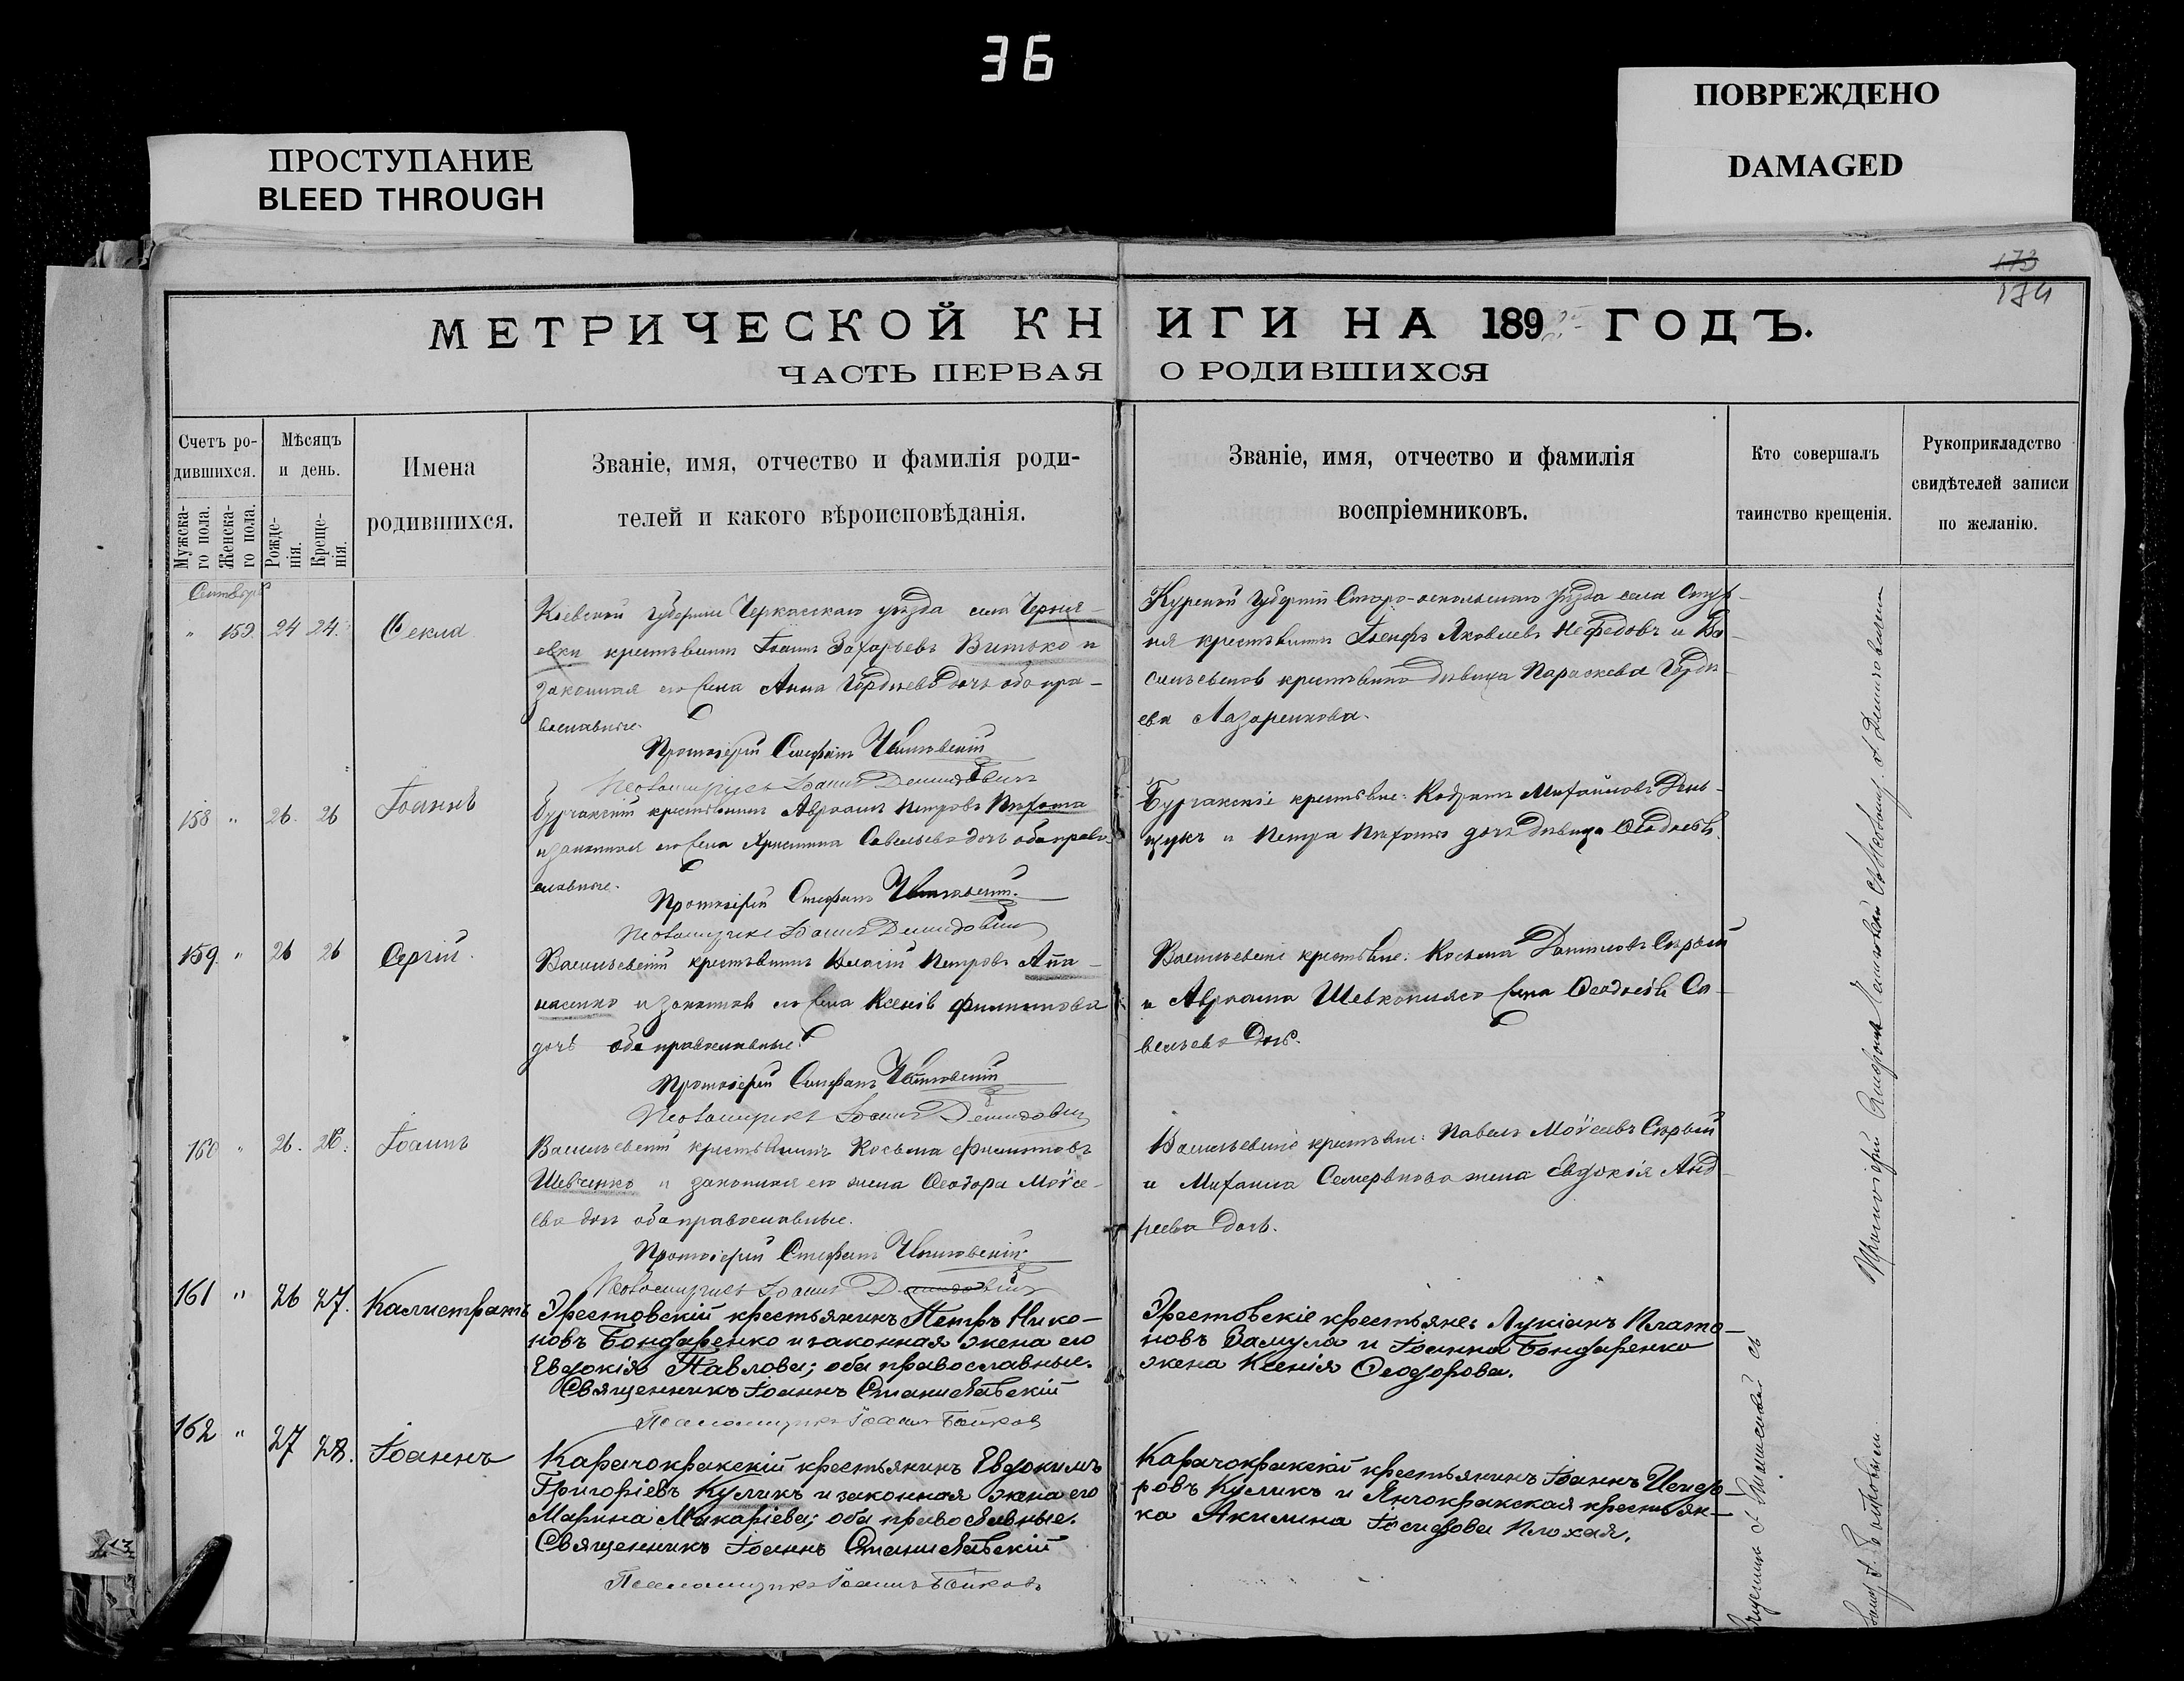 36
ПРОСТУПАНИЕ
BLEED THROUGH
ПОВРЕЖДЕНО
DAMAGED
173
174
МЕТРИЧЕСКОЙ КНИГИ НА 189 ГОДЪ.
ЧАСТЬ ПЕРВАЯ О РОДИВШИХСЯ
Счетъ ро-
дившихся.
Мужска-
го пола.
Женска-
го пола.
Мѣсяцъ
и день.
Рожде-
нія.
Креще-
нія.
Имена
родившихся.
Званіе, имя, отчество и фамилія роди-
телей и какого вѣроисповѣданія.
Званіе, имя, отчество и фамилія
воспріемниковъ.
Кто совершалъ
таинство крещенія.
Рукоприкладство
свидѣтелей записи
по желанію.
Сентябрь
" 159. 24 24. Ѳекла
Кіевской Губерніи Черкасскаго уѣзда села Черня-
евки крестьянинъ Іоаннъ Захарьевъ Витько и
законная его жена Анна Гордѣева дочь оба пра-
вославные.
Протоіерей Стефанъ
Псаломщикъ Іоаннъ Демидовичъ
Курской Губерніи Старо-оскольскаго уѣзда села
крестьянинъ Іосифъ Яковлевъ Нефедовъ и Ва-
сильевская крестьянка дѣвица Параскева Гордѣ-
ева Лазаренкова.
158 " 26. 26 Іоаннъ
Бурчакскій крестьянинъ Авраамъ Петровъ Пѣхота
и законная его жена Христина Савельева дочь оба право-
славные.
Протоіерей Стефанъ
Псаломщикъ Іоаннъ Демидовичъ
Бурчакскіе крестьяне: Кодратъ Михайловъ Рень-
щукъ и Петра Пѣхоты дочь дѣвица Ѳеодосія.
159. " 26 26 Сергій.
Васильевскій крестьянинъ Власій Петровъ Апа-
насенко и законная его жена Ксенія Филиппова
дочь оба православные.
Протоіерей Стефанъ
Псаломщикъ Іоаннъ Демидовичъ
Васильевскіе крестьяне: Косьма Даниловъ Сѣрый
и Авраама Шевкопляса жена Ѳеодосія Са-
вельева дочь.
160 " 26. 26. Іоаннъ
Васильевскій крестьянинъ Косьма Филипповъ
Шевченко и законная его жена Ѳеодора Моѵсе-
ева дочь оба православные.
Протоіерей Стефанъ
Псаломщикъ Іоаннъ Демидовичъ
Васильевскіе крестьяне: Павелъ Моѵсеевъ Сѣрый
и Михаила Семерѣнова жена Евдокія Анд-
реева дочь.
161 " 26 27. Каллистратъ
Эрестовскій крестьянинъ Петръ Нико-
новъ Бондаренко и законная жена его
Евдокія Павлова; оба православные.
Священникъ Іоаннъ Станиславскій
Псаломщикъ Іоаннъ Бойковъ
Эрестовскіе крестьяне: Лукіанъ Плато-
новъ Замула и Іоанна Бондаренко
жена Ксенія Ѳеодорова.
162 " 27 28. Іоаннъ
Карачокракскій крестьянинъ Евдокимъ
Григоріевъ Куликъ и законная жена его
Марина Макаріева; оба православные.
Священникъ Іоаннъ Станиславскій
Псаломщикъ Іоаннъ Бойковъ
Карачокракскій крестьянинъ Іоаннъ Исидо-
ровъ Куликъ и Янчокракская крестьян-
ка Акилина Іосифова Плохая.